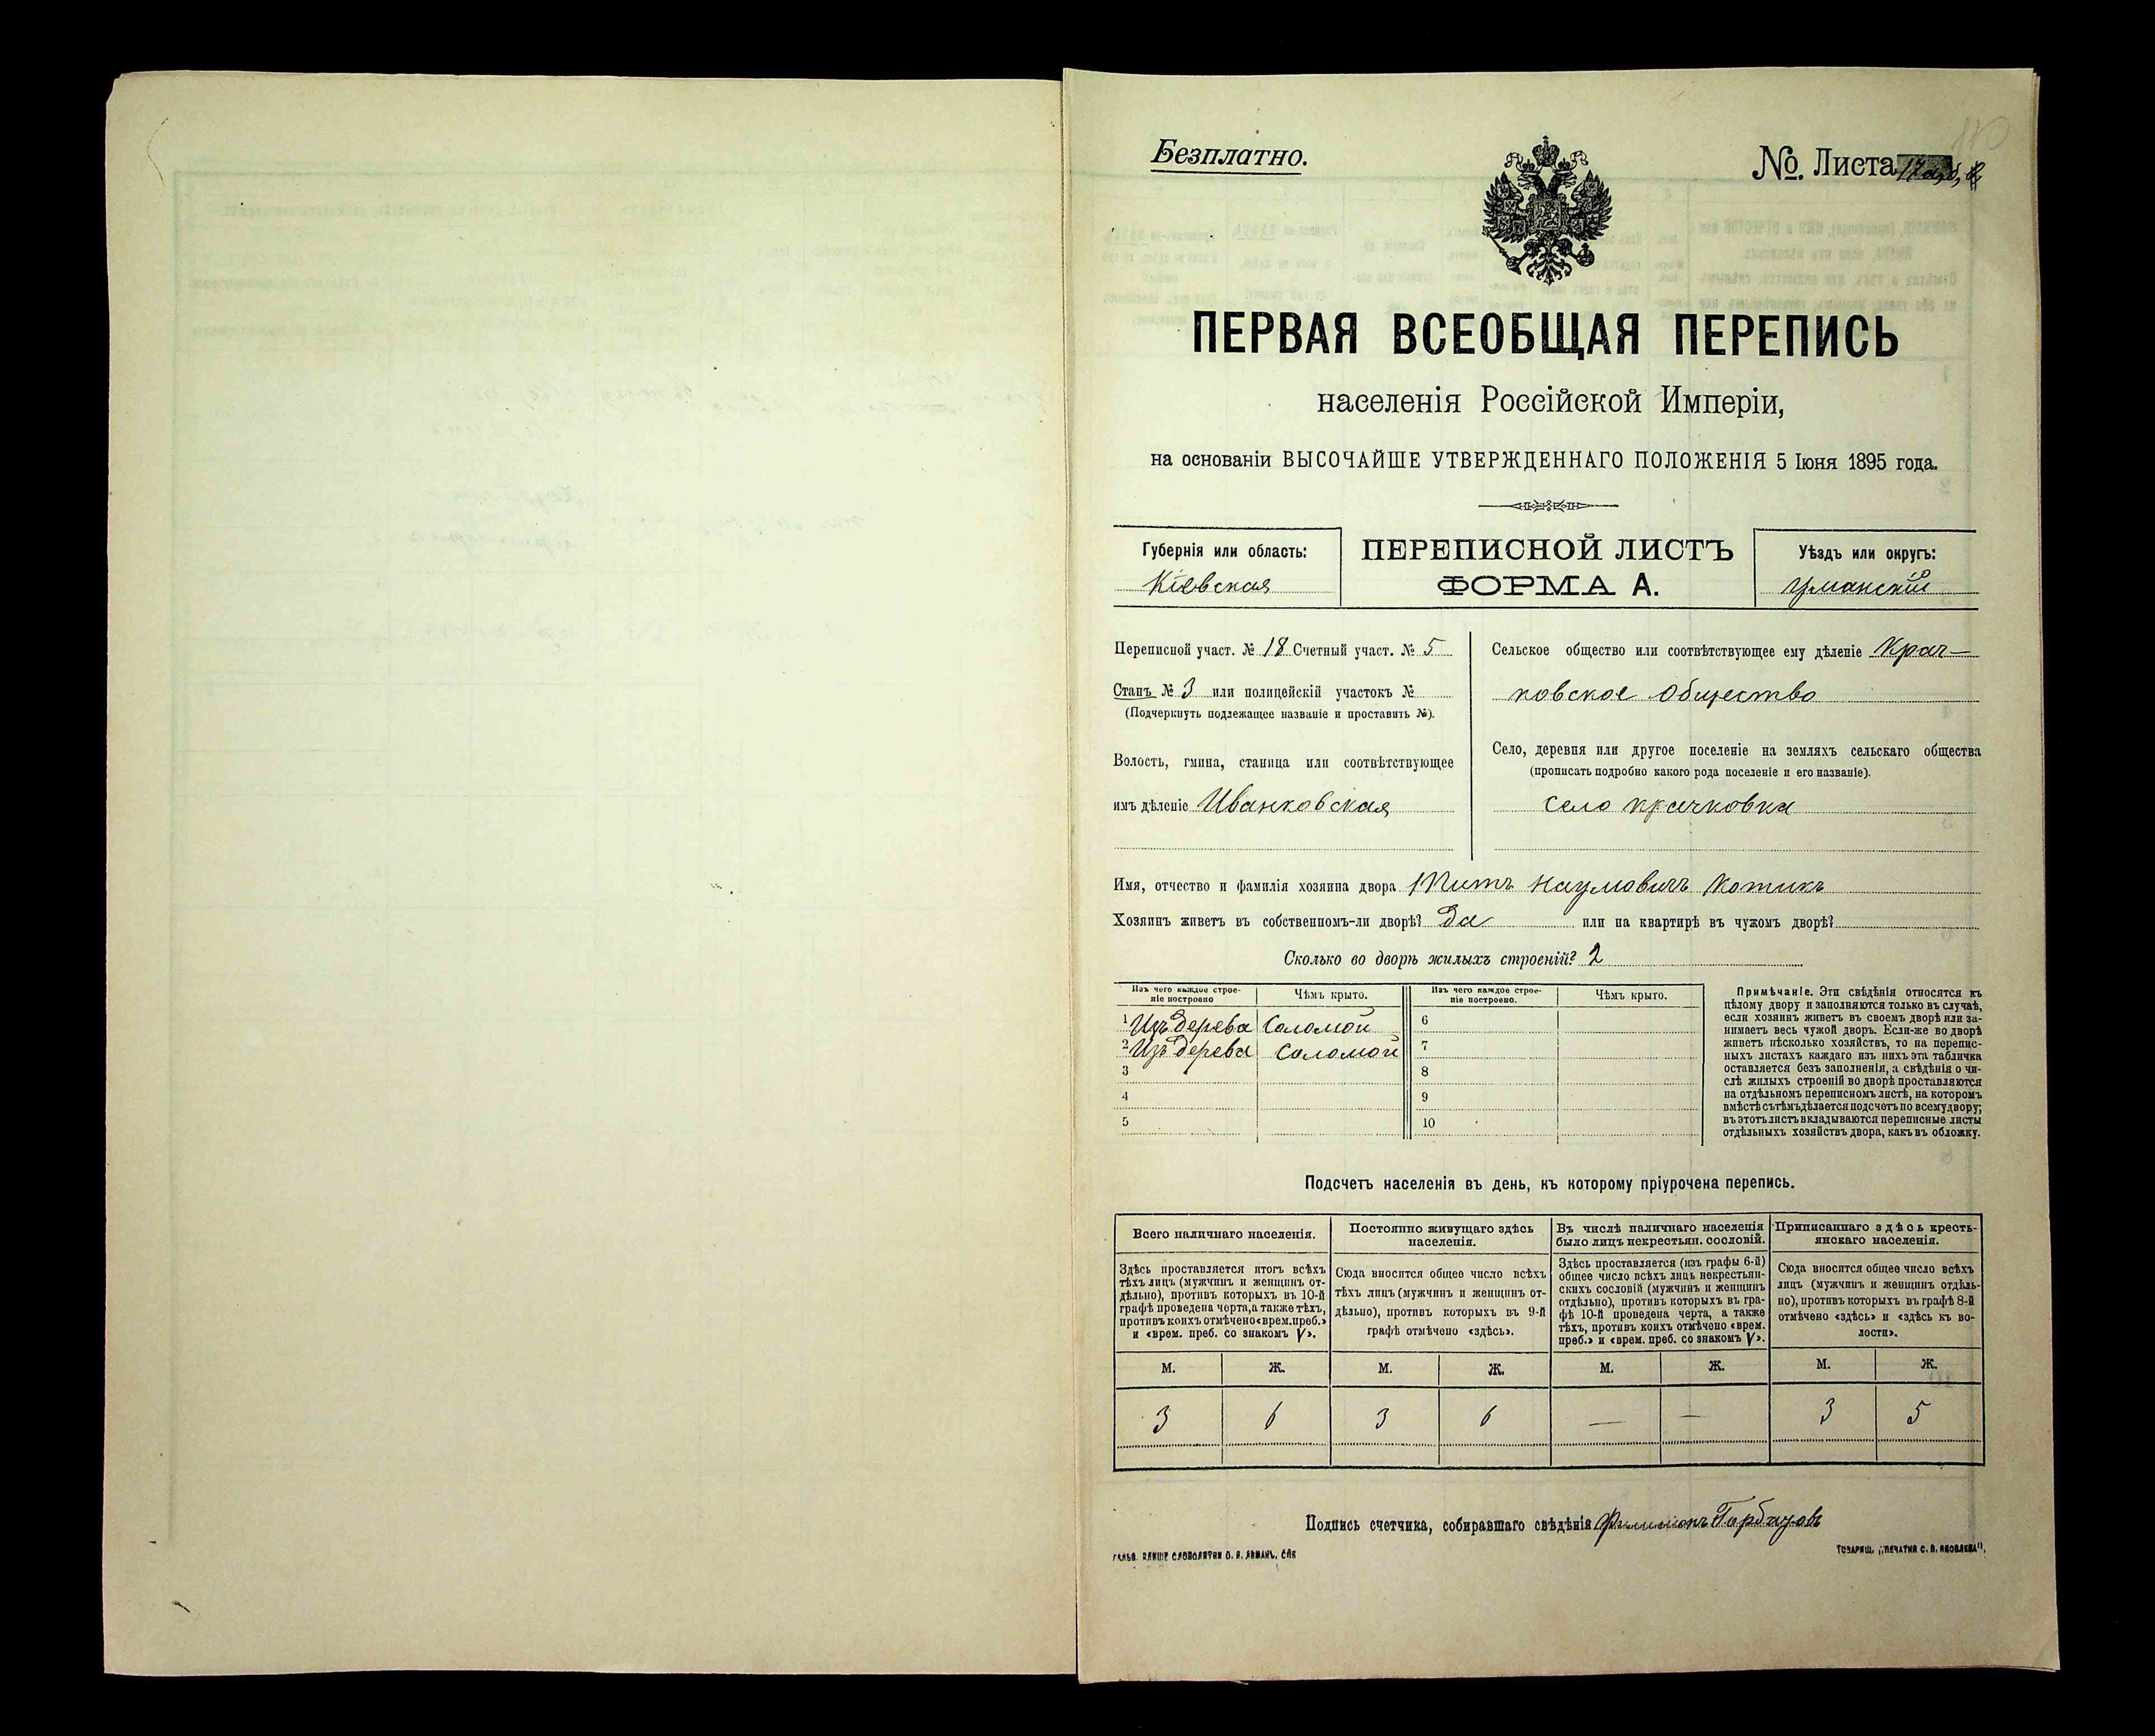 Безплатно.
№. Листа 17
ПЕРВАЯ ВСЕОБЩАЯ ПЕРЕПИСЬ
населенія Россійской Имперіи,
на основаніи ВЫСОЧАЙШЕ УТВЕРЖДЕННАГО ПОЛОЖЕНІЯ 5 Іюня 1895 года.
Губернія или область:
Кіевская
ПЕРЕПИСНОЙ ЛИСТЪ
ФОРМА А.
Уѣздъ или округъ:
Уманскій
Переписной участ. № 18 Счетный участ. № 5
Станъ № 3 или полицейскій участокъ №
(Подчеркнуть подлежащее названіе и проставить №).
Волость, гмина, станица или соотвѣтствующее
имъ дѣленіе Иванковская
Сельское общество или соотвѣтствующее ему дѣленіе Крач-
ковское общество
Село, деревня или другое поселеніе на земляхъ сельскаго общества
(прописать подробно какого рода поселеніе и его названіе).
село крачковка
Имя, отчество и фамилія хозяина двора Наумовичъ Котикъ
Хозяинъ живетъ въ собственномъ-ли дворѣ? Да или на квартирѣ въ чужомъ дворѣ?
Сколько во дворѣ жилыхъ строеній? 2
Изъ чего каждое строе-
ніе построено
Чѣмъ крыто.
Изъ чего каждое строе-
ніе построено.
Чѣмъ крыто.
1 Изъ дерева Соломой
2 Изъ дерева Соломой
3
4
5
6
7
8
9
10
Примѣчаніе. Эти свѣдѣнія относятся къ
цѣлому двору и заполняются только въ случаѣ,
если хозяинъ живетъ въ своемъ дворѣ или за-
нимаетъ весь чужой дворъ. Если-же во дворѣ
живетъ нѣсколько хозяйствъ, то на перепис-
ныхъ листахъ каждаго изъ нихъ эта табличка
оставляется безъ заполненія, а свѣдѣнія о чи-
слѣ жилыхъ строеній во дворѣ проставляются
на отдѣльномъ переписномъ листѣ, на которомъ
вмѣстѣ съ тѣмъ дѣлается подсчетъ по всему двору;
въ этотъ листъ вкладываются переписные листы
отдѣльныхъ хозяйствъ двора, какъ въ обложку.
Подсчетъ населенія въ день, къ которому пріурочена перепись.
Всего наличнаго населенія.
Здѣсь проставляется итогъ всѣхъ
тѣхъ лицъ (мужчинъ и женщинъ от-
дѣльно), противъ которыхъ въ 10-й
графѣ проведена черта, а также тѣхъ,
противъ коихъ отмѣчено «врем. преб.»
и «врем. преб. со знакомъ V».
Постоянно живущаго здѣсь
населенія.
Сюда вносится общее число всѣхъ
тѣхъ лицъ (мужчинъ и женщинъ от-
дѣльно), противъ которыхъ въ 9-й
графѣ отмѣчено «здѣсь».
Въ числѣ наличнаго населенія
было лицъ некрестьян. сословій.
Здѣсь проставляется (изъ графы 6-й)
общее число всѣхъ лицъ некрестьян-
скихъ сословій (мужчинъ и женщинъ
отдѣльно), противъ которыхъ въ гра-
фѣ 10-й проведена черта, а также
тѣхъ, противъ коихъ отмѣчено «врем.
преб.» и «врем. преб. со знакомъ V».
Приписаннаго здѣсь кресть-
янскаго населенія.
Сюда вносится общее число всѣхъ
лицъ (мужчинъ и женщинъ отдѣль-
но), противъ которыхъ въ графѣ 8-й
отмѣчено «здѣсь» и «здѣсь къ во-
лости».
М. Ж. М. Ж. М. Ж. М. Ж.
3 6 3 6 — — 3 5
Подпись счетчика, собиравшаго свѣдѣнія
ТОВАРИЩ. „ПЕЧАТНЯ С. П. ЯКОВЛЕВА".